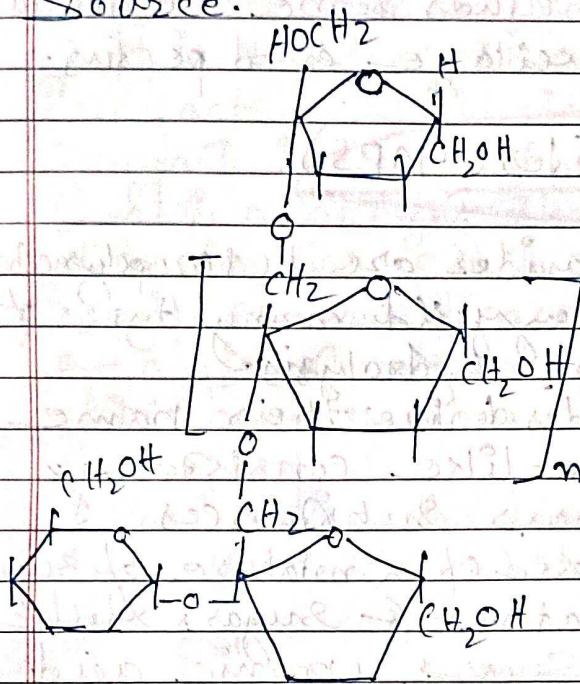 Source.
HOCH2
O H
CH2OH
O
CH2 O
CH2OH
O n
CH2OH
CH2
O O
O
CH2OH